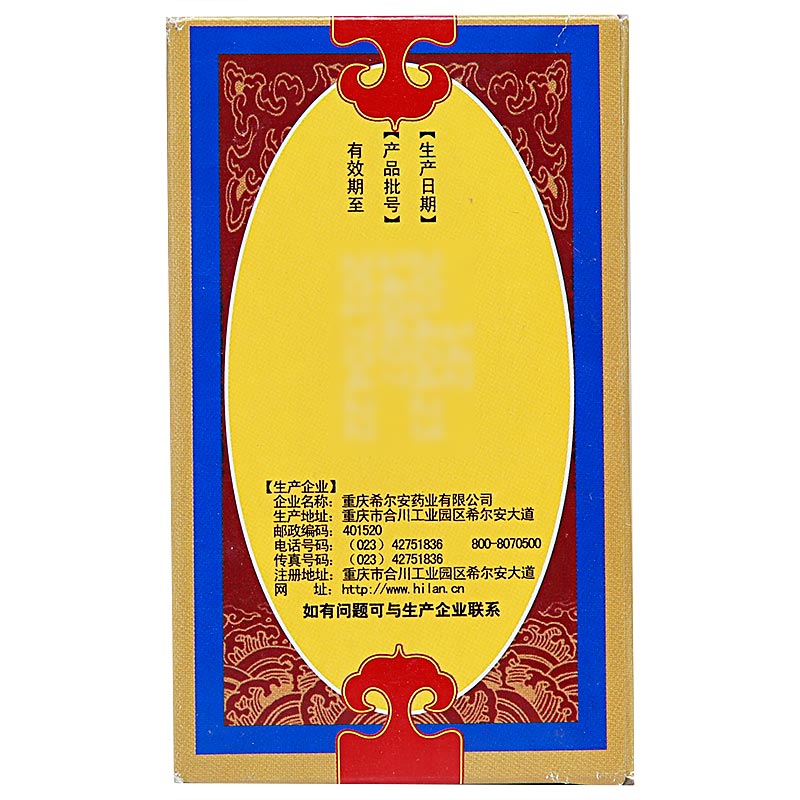 【生产日期】
【产品批号】
有效期至
【生产企业】
企业名称：重庆希尔安药业有限公司
生产地址：重庆市合川工业园区希尔安大道
邮政编码：401520
电话号码：（023）42751836 800-8070500
传真号码：（023）42751836
注册地址：重庆市合川工业园区希尔安大道
网 址：http://www.hilan.cn
如有问题可与生产企业联系